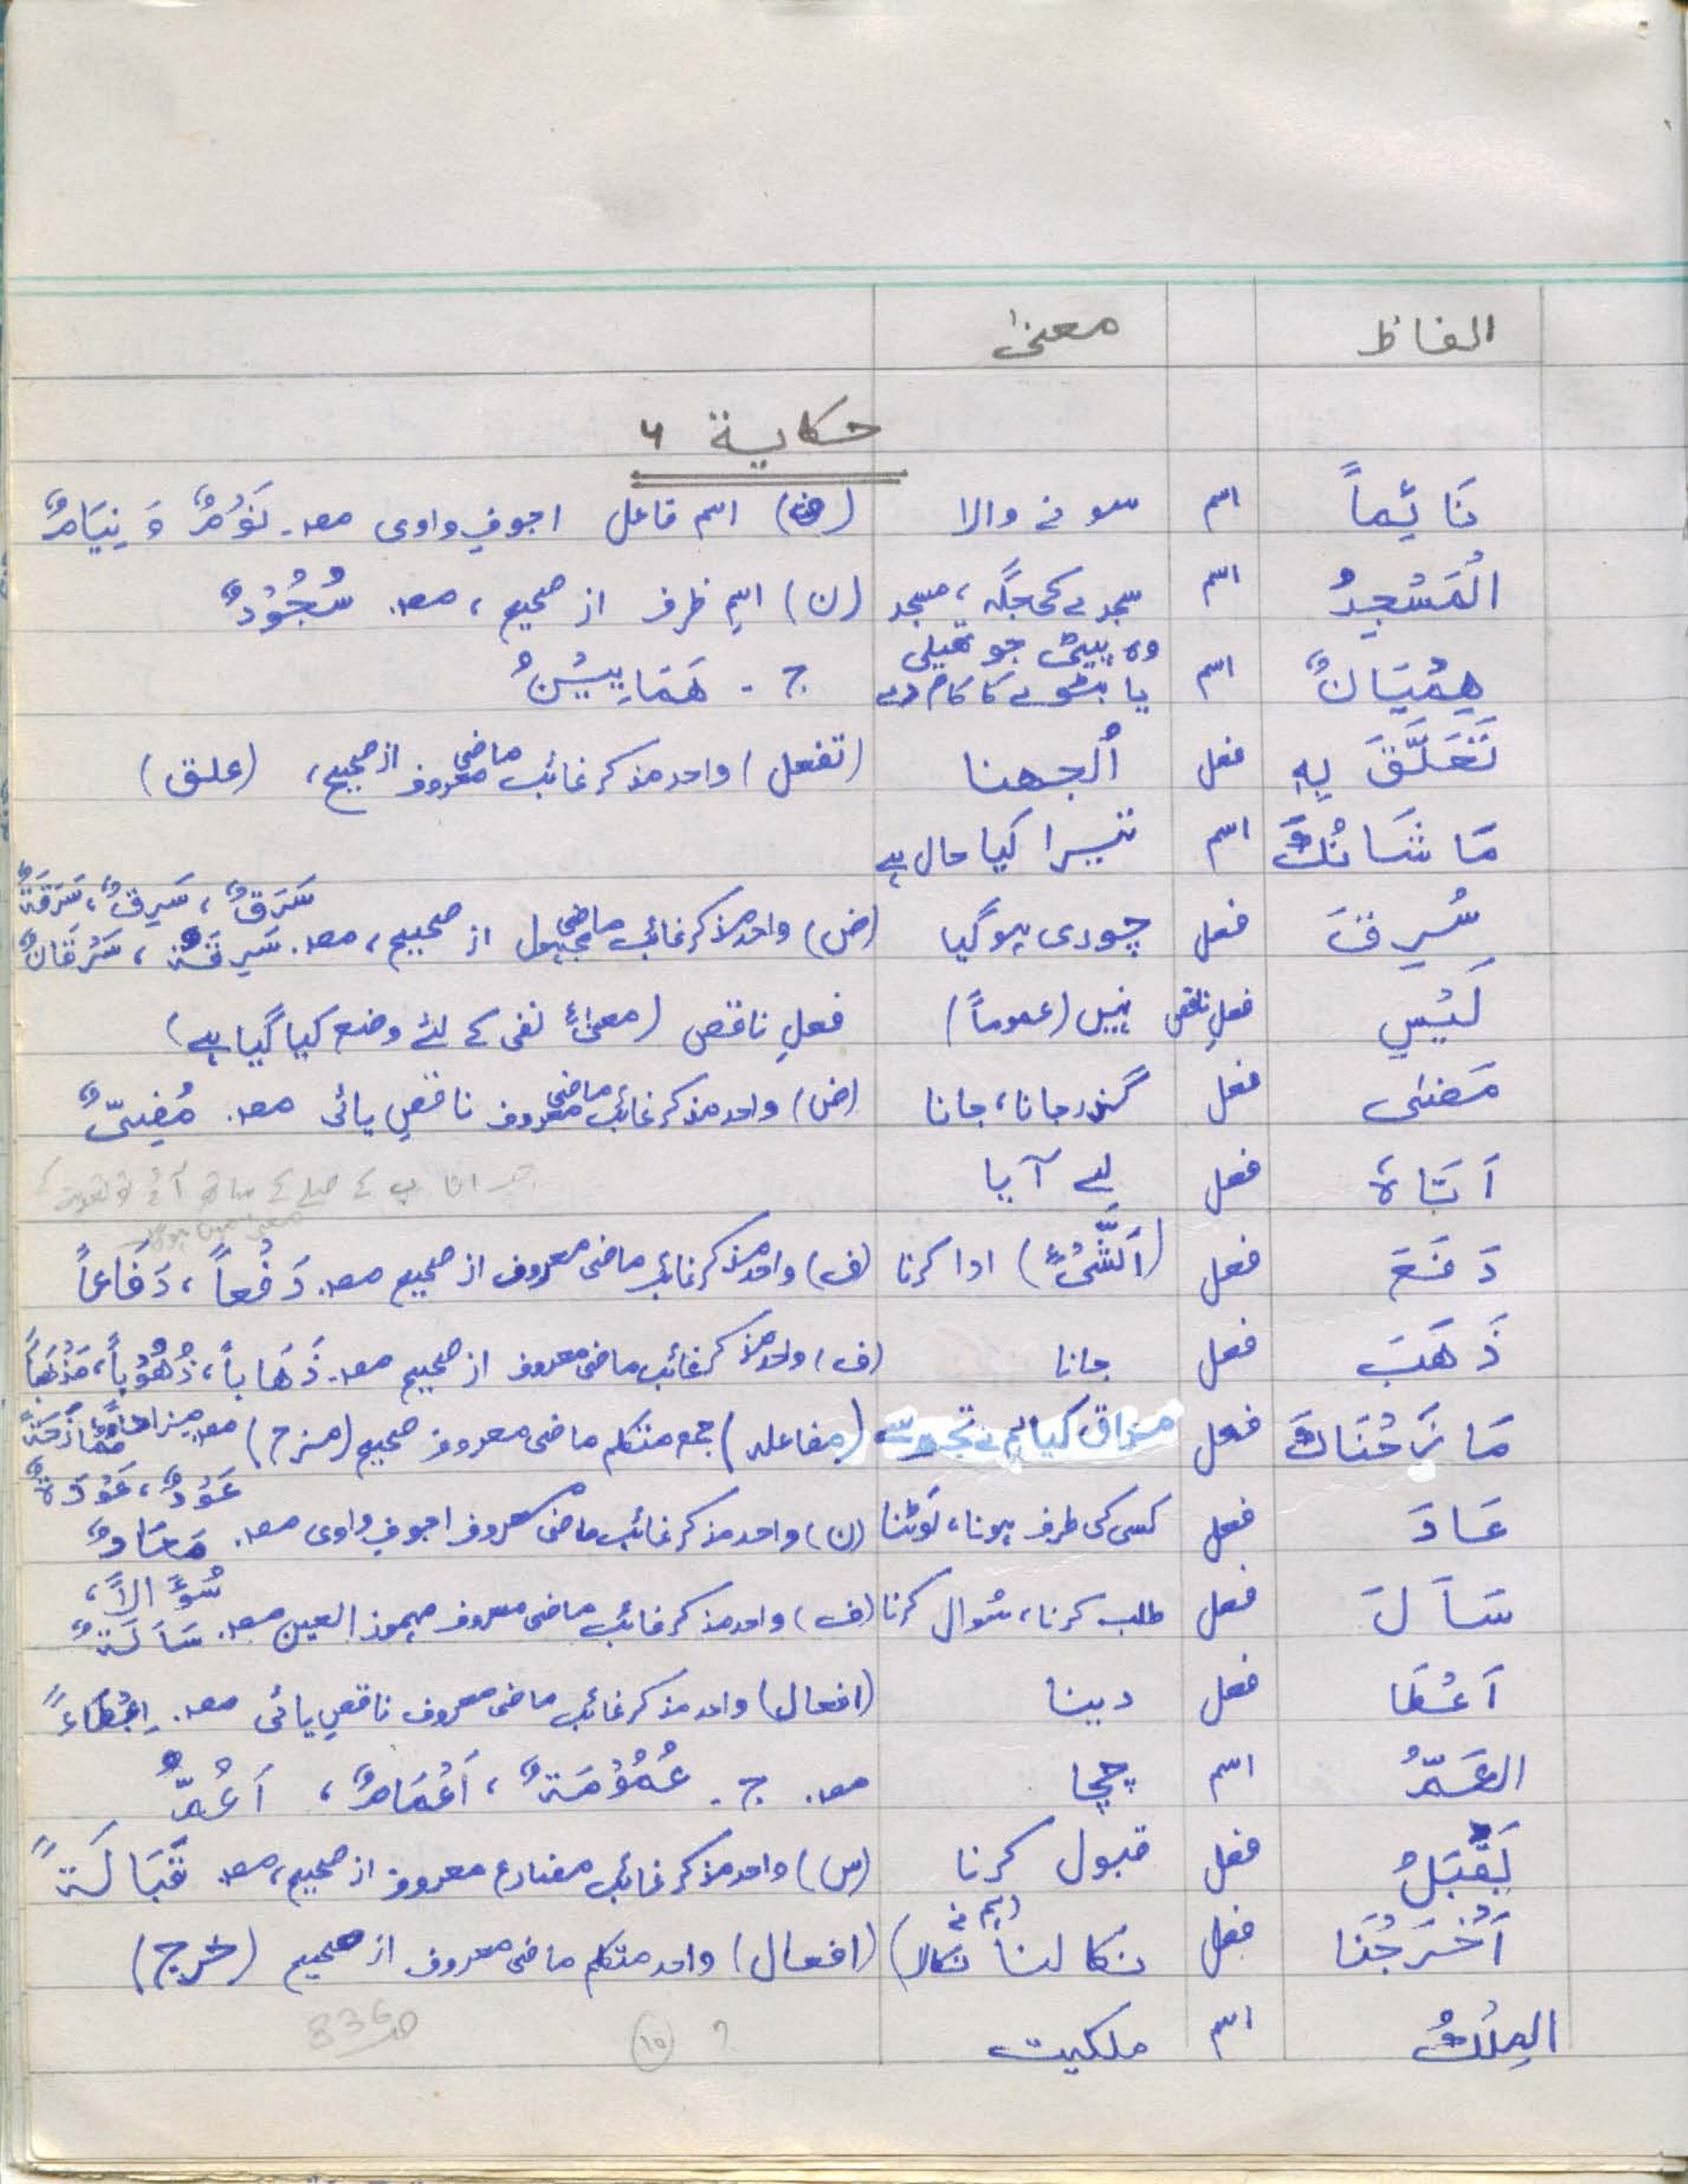 الفاظ معنیٰ
حكاية ٦
نَائِماً اسم سونے والا (ض) اسم فاعل اجوفِ واوی مصـ. نَوْمٌ وَ نِیَامٌ
الْمَسْجِدُ اسم سجدے کی جگہ، مسجد (ن) اسمِ ظرف از صحیح، مصـ. سُجُوْدٌ
هِمْيَانٌ اسم وہ پیٹی جو تھیلی
یا بٹوے کا کام دے ج. هَمَايِيْنُ
تَعَلَّقَ بِهِ فعل اُلجھنا (تفعل) واحد مذکر غائب ماضی معروف از صحیح، (علق)
مَا شَانُكَ اسم تیرا کیا حال ہے
سَرَقٌ، سَرِقٌ، سَرَقَةٌ
سُرِقَ فعل چوری ہو گیا (ض) واحد مذکر غائب ماضی مجہول از صحیح، مصـ. سَرِقَة، سَرْقَانٌ
لَيْسَ فعلِ ناقص نہیں (عموماً) فعلِ ناقص (معنیٰٔ نفی کے لئے وضع کیا گیا ہے)
مَضىٰ فعل گزر جانا، جانا (ض) واحد مذکر غائب ماضی معروف ناقصِ یائی مصـ. مُضِىٌّ
اَتَاهُ فعل لے آیا
دَفَعَ فعل (اَلشَّیْءَ) ادا کرنا (ف) واحد مذکر غائب ماضی معروف از صحیح مصـ. دَفْعاً، دَفَاعاً
ذَهَبَ فعل جانا (ف) واحد مذکر غائب ماضی معروف از صحیح مصـ. ذَهَاباً، ذُهُوْباً، مَذْهَباً
مَا زَحْنَاكَ فعل مذاق کیا ہم نے تجھ سے (مفاعلہ) جمع متکلم ماضی معروف صحیح (مزح) مصـ.
عَوْدٌ، عَوْدَةٌ
عَادَ فعل کسی کی طرف ہونا، لَوٹنا (ن) واحد مذکر غائب ماضی معروف اجوفِ واوی مصـ. مَعَادٌ
سُؤَالاً،
سَاَلَ فعل طلب کرنا، سُوال کرنا (ف) واحد مذکر غائب ماضی معروف مہموز العین مصـ. سَاَلَةٌ
اَعْطَا فعل دینا (افعال) واحد مذکر غائب ماضی معروف ناقصِ یائی مصـ. اِعْطَاءً
العَمُّ اسم چچا مصـ. ج. عُمُوْمَةٌ، اَعْمَامٌ، اَعُمٌّ
يَقْبَلُ فعل قبول کرنا (س) واحد مذکر غائب مضارع معروف از صحیح، مصـ. قَبَالَةً
اَخْرَجْنَا فعل نکالنا (ہم نے نکالا) (افعال) واحد متکلم ماضی معروف از صحیح (خرج)
المِلْكُ اسم ملکیت ؟